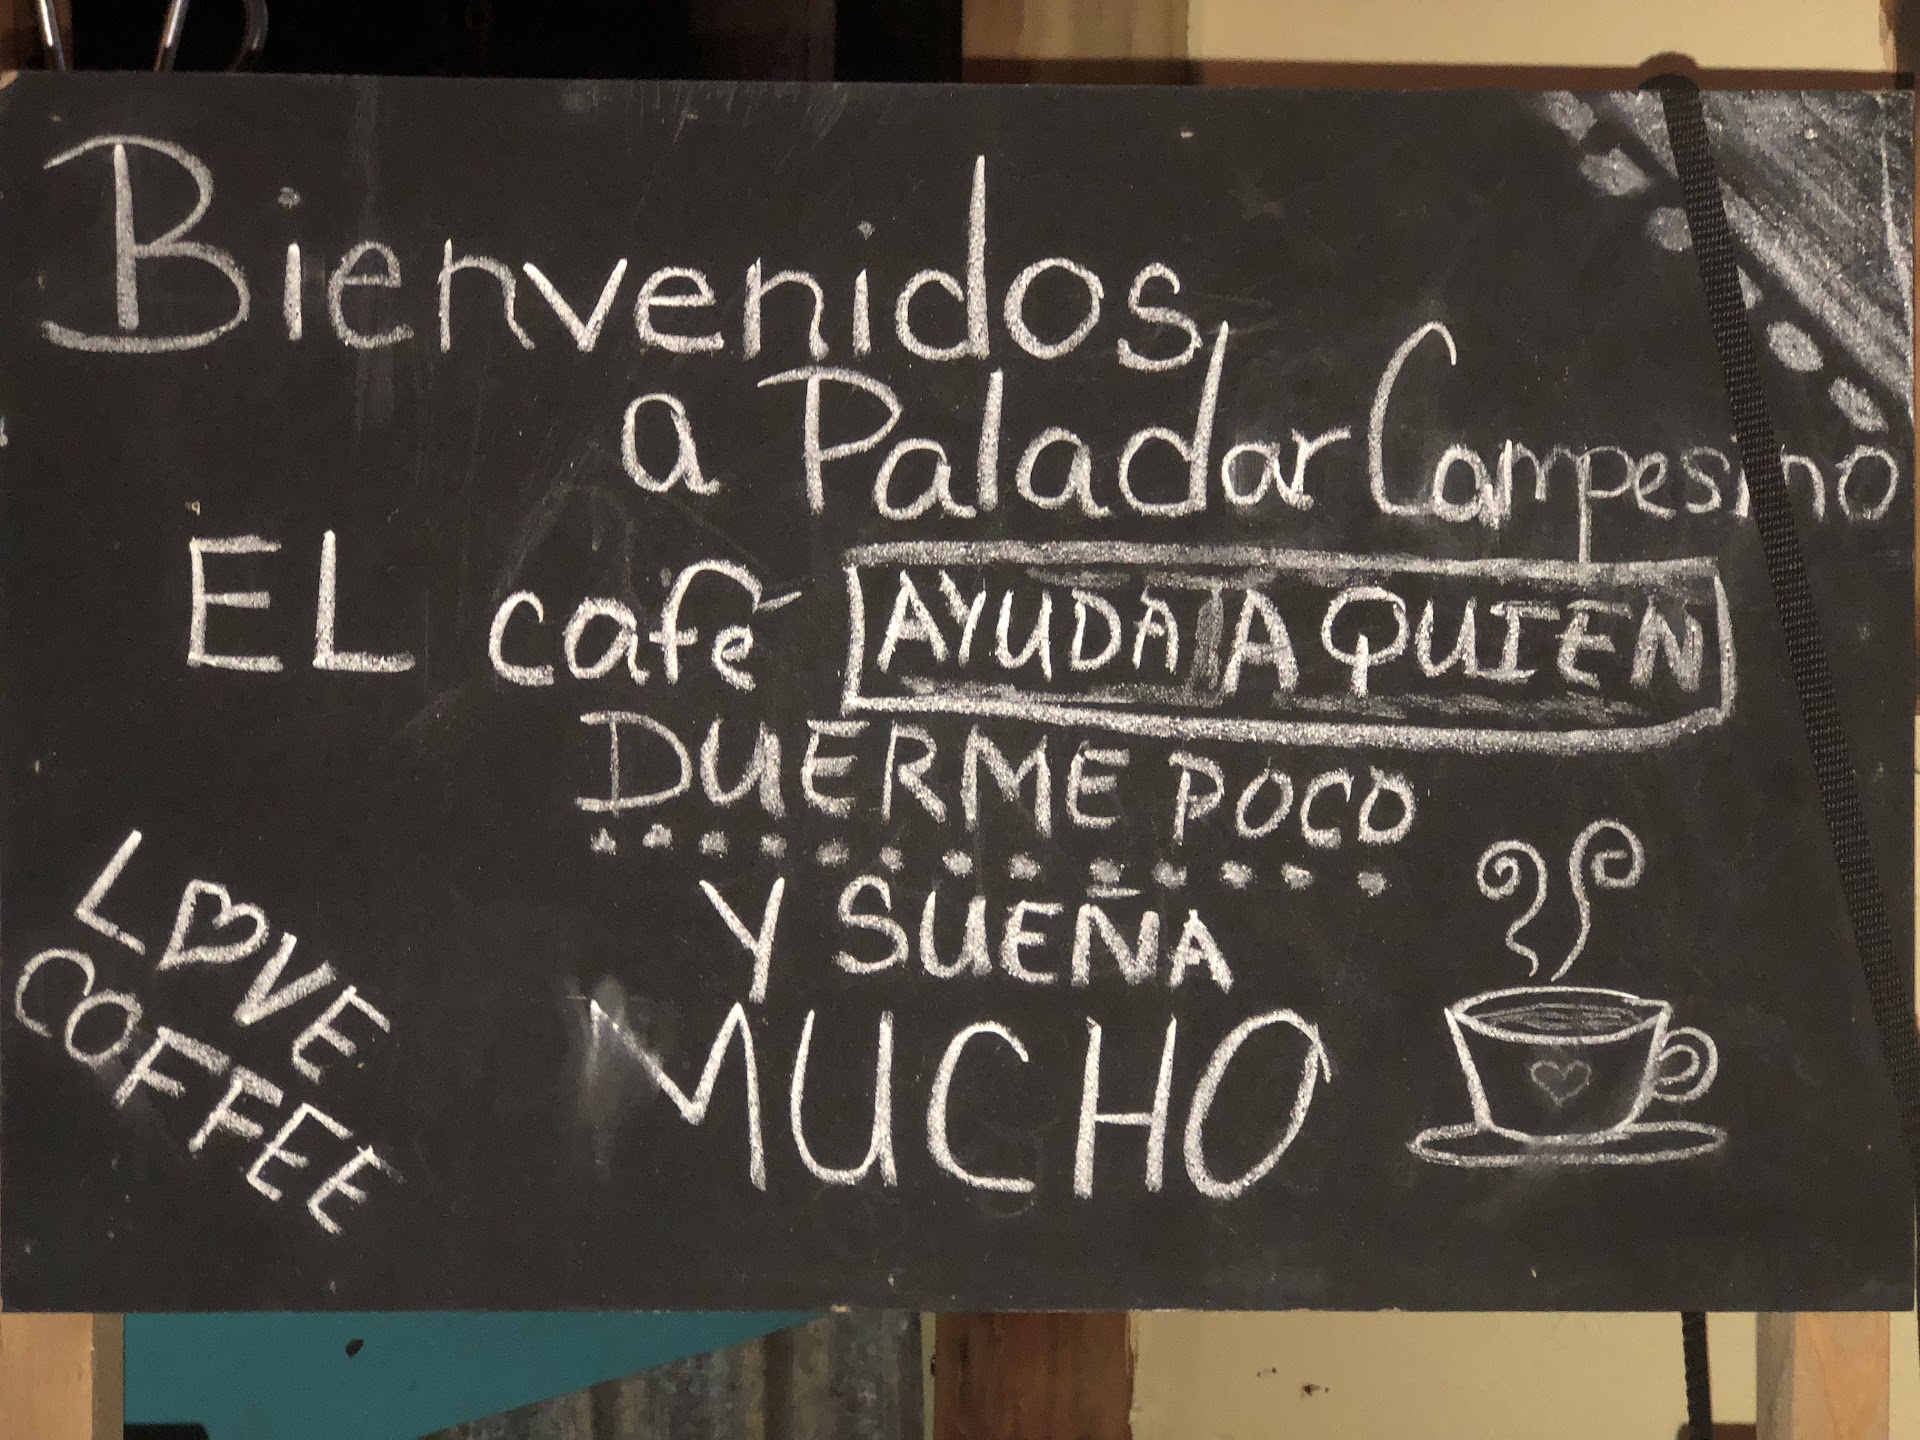 Bienvenidos
a Paladar Campesino
EL café AYUDA A QUIEN
DUERME POCO
Y SUEÑA
MUCHO
LOVE
COFFEE